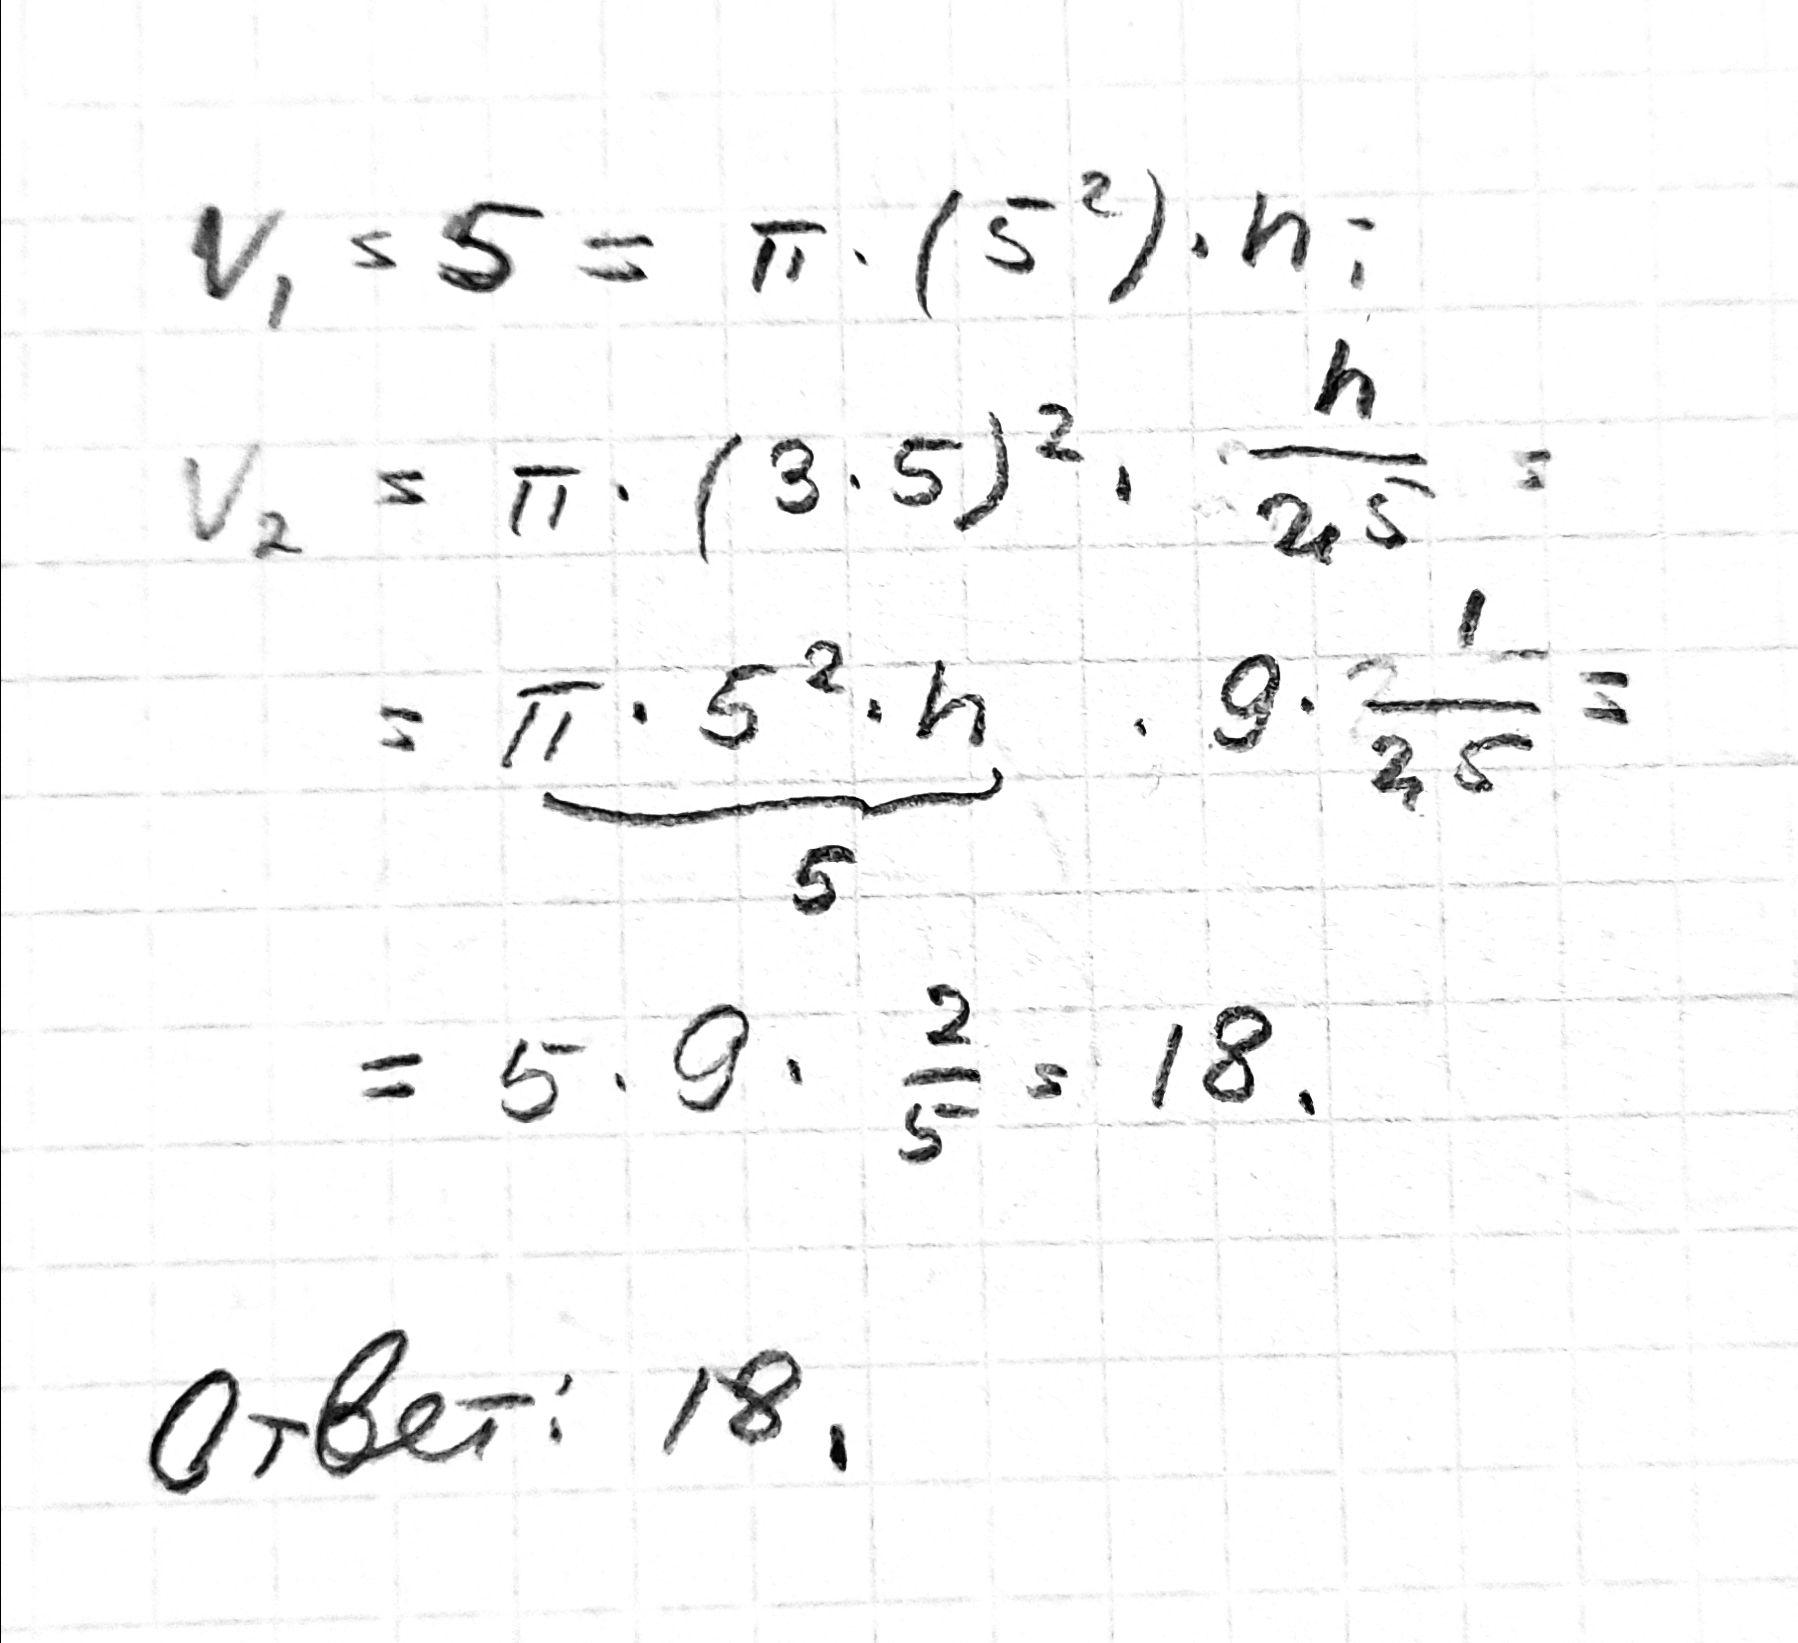 V₁ = 5 = π · (5²) · h;
V₂ = π · (3 · 5)² · h/2,5 =
= π · 5² · h · 9 · 1/2,5 =
5
= 5 · 9 · 2/5 = 18.
Ответ: 18.